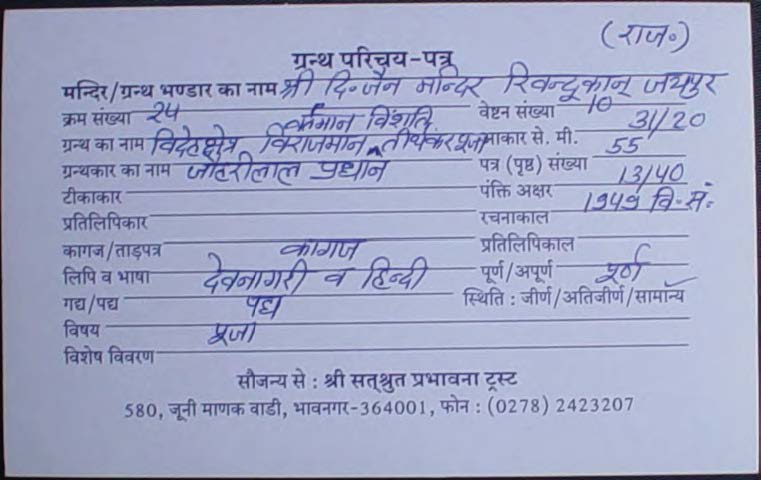 (राज॰)
ग्रन्थ परिचय-पत्र
मन्दिर/ग्रन्थ भण्डार का नाम श्री दि॰जैन मन्दिर रिवन्दूकान् जयपुर
क्रम संख्या 24 वेष्टन संख्या 10
वर्तमान विंशति
ग्रन्थ का नाम विदेहक्षेत्र विराजमान ^ तीर्थंकर पूजा आकार से. मी. 31/20
ग्रन्थकार का नाम जौहरीलाल प्रधान पत्र (पृष्ठ) संख्या 55
टीकाकार पंक्ति अक्षर 13/40
प्रतिलिपिकार रचनाकाल 1949 वि॰सं॰
कागज/ताड़पत्र कागज प्रतिलिपिकाल
लिपि व भाषा देवनागरी व हिन्दी पूर्ण/अपूर्ण पूर्ण
गद्य/पद्य पद्य स्थिति : जीर्ण/अतिजीर्ण/सामान्य
विषय पूजा
विशेष विवरण
सौजन्य से : श्री सत्श्रुत प्रभावना ट्रस्ट
580, जूनी माणक वाडी, भावनगर-364001, फोन : (0278) 2423207